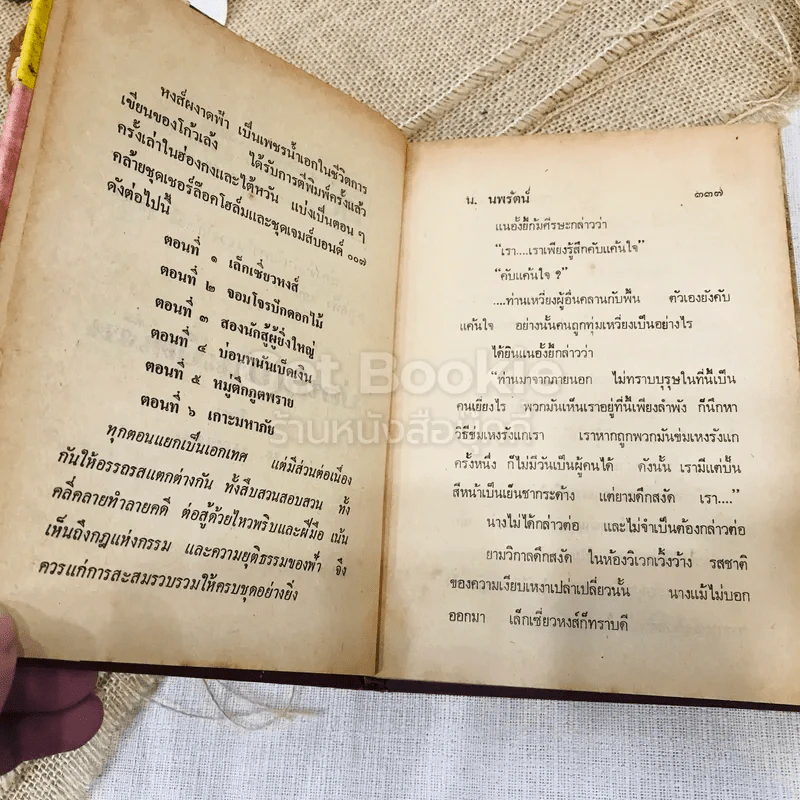 หงส์ผงาดฟ้า เป็นเพชรน้ำเอกในชีวิตการ
เขียนของโก้วเล้ง ได้รับการตีพิมพ์ครั้งแล้ว
ครั้งเล่าในฮ่องกงและไต้หวัน แบ่งเป็นตอน ๆ
คล้ายชุดเชอร์ล๊อคโฮล์มและชุดเจมส์บอนด์ ๐๐๗
ดังต่อไปนี้
ตอนที่ ๑ เล็กเซี่ยวหงส์
ตอนที่ ๒ จอมโจรปักดอกไม้
ตอนที่ ๓ สองนักสู้ผู้ยิ่งใหญ่
ตอนที่ ๔ บ่อนพนันเบ็ดเงิน
ตอนที่ ๕ หมู่ตึกภูตพราย
ตอนที่ ๖ เกาะมหาภัย
ทุกตอนแยกเป็นเอกเทศ แต่มีส่วนต่อเนื่อง
กันให้อรรถรสแตกต่างกัน ทั้งสืบสวนสอบสวน ทั้ง
คลี่คลายทำลายคดี ต่อสู้ด้วยไหวพริบและฝีมือ เน้น
เห็นถึงกฎแห่งกรรม และความยุติธรรมของฟ้า จึง
ควรแก่การสะสมรวบรวมให้ครบชุดอย่างยิ่ง
น. นพรัตน์ ๓๓๗
แนอั้งยี้ก้มศีรษะกล่าวว่า
"เรา....เราเพียงรู้สึกคับแค้นใจ"
"คับแค้นใจ ?"
....ท่านเหวี่ยงผู้อื่นคลานกับพื้น ตัวเองยังคับ
แค้นใจ อย่างนั้นคนถูกทุ่มเหวี่ยงเป็นอย่างไร
ได้ยินแนอั้งยี้กล่าวว่า
"ท่านมาจากภายนอก ไม่ทราบบุรุษในที่นี้เป็น
คนเยี่ยงไร พวกมันเห็นเราอยู่ที่นี้เพียงลำพัง ก็นึกหา
วิธีข่มเหงรังแกเรา เราหากถูกพวกมันข่มเหงรังแก
ครั้งหนึ่ง ก็ไม่มีวันเป็นผู้คนได้ ดังนั้น เรามีแต่ปั้น
สีหน้าเป็นเย็นชากระด้าง แต่ยามดึกสงัด เรา...."
นางไม่ได้กล่าวต่อ และไม่จำเป็นต้องกล่าวต่อ
ยามวิกาลดึกสงัด ในห้องวิเวกเวิ้งว้าง รสชาติ
ของความเงียบเหงาเปล่าเปลี่ยวนั้น นางแม้ไม่บอก
ออกมา เล็กเซี่ยวหงส์ก็ทราบดี
Get Bookie
ร้านหนังสือกู๊ดดี้